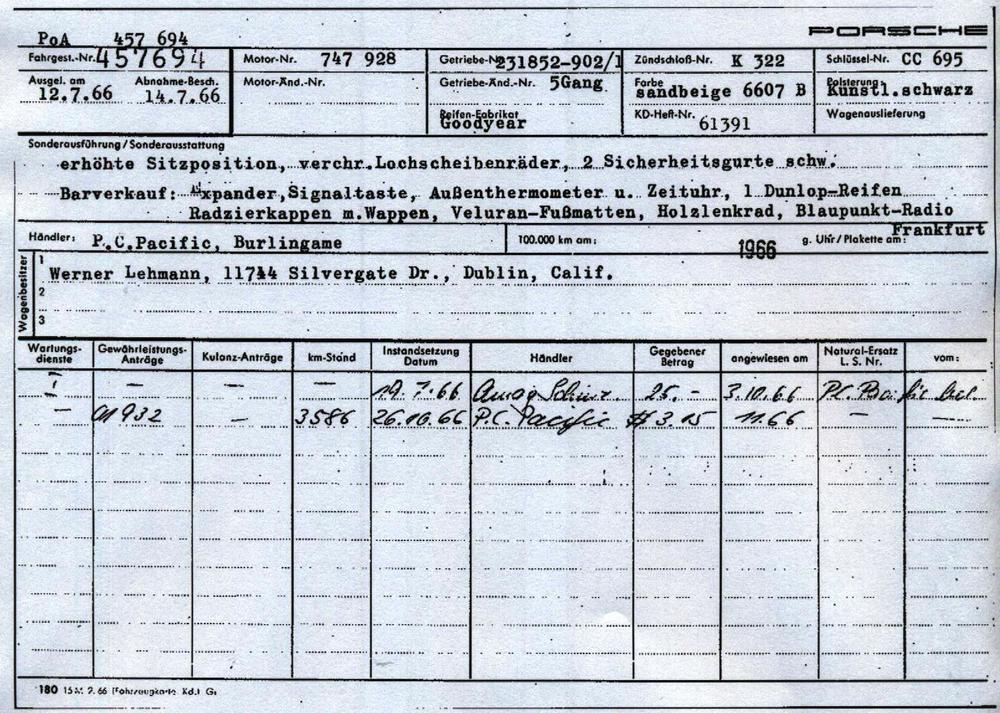 PORSCHE
PoA 457 694
Fahrgest.-Nr. 457694 Motor-Nr. 747 928 Getriebe-Nr. 231852-902/1 Zündschloß-Nr. K 322 Schlüssel-Nr. CC 695
Ausgel. am 12.7.66 Abnahme-Besch. 14.7.66 Motor-Änd.-Nr. Getriebe-Änd.-Nr. 5Gang Farbe sandbeige 6607 B Polsterung Kunstl.schwarz
Reifen-Fabrikat Goodyear KD-Heft-Nr. 61391 Wagenauslieferung
Sonderausführung/Sonderausstattung
erhöhte Sitzposition, verchr.Lochscheibenräder, 2 Sicherheitsgurte schw.
Barverkauf: xpander,Signaltaste, Außenthermometer u. Zeituhr, 1 Dunlop-Reifen
Radzierkappen m.Wappen, Veluran-Fußmatten, Holzlenkrad, Blaupunkt-Radio
Frankfurt
Händler: P.C.Pacific, Burlingame 100.000 km am: 1966 g. Uhr/Plakette am:
Wagenbesitzer
1 Werner Lehmann, 11744 Silvergate Dr., Dublin, Calif.
2
3
Wartungsdienste Gewährleistungs-Anträge Kulanz-Anträge km-Stand Instandsetzung Datum Händler Gegebener Betrag angewiesen am Natural-Ersatz L. S. Nr. vom:
- - - - 19.7.66 Amag 25.- 3.10.66
- 01932 - 3586 26.10.66 P.C. Pacific $ 3.15 11.66 - -
180 15 M. 2. 66 (Fahrzeugkarte Kd.) Gs